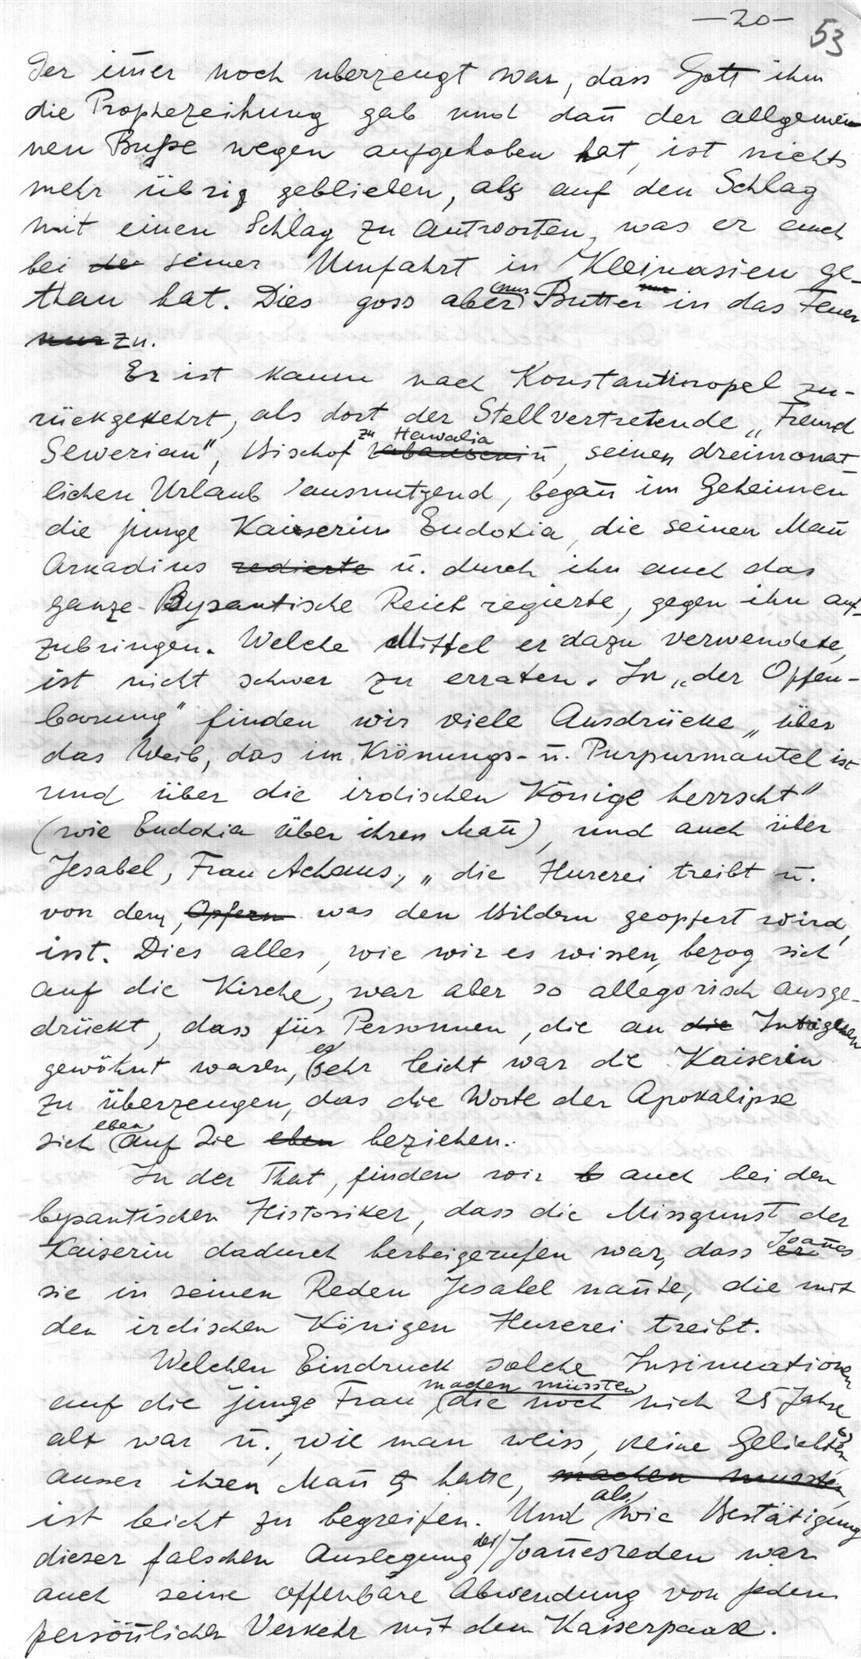 —20— 53
Der im̄er noch uberzeugt war, dass Gott ihm
die Prophezeihung gab und dan̄ der allgemei-
nen Buße wegen aufgehoben hat, ist nichts
mehr übrig geblieben, als auf den Schlag
mit einen Schlag zu Antworten, was er auch
bei der seiner Umfahrt in Kleinasien ge-
than hat. Dies goss aber nur Butter in das Feuer
nur zu.
Er ist kaum nach Konstantinopel zu-
rückgekehrt, als dort der Stellvertretende „Freund
Sewerian", Bischof zu Hawalia, seinen dreimonat-
lichen Urlaub ausnutzend, began̄ im Geheimen
die junge Kaiserin Eudoxia, die seinen Man̄
Arkadius redierte u. durch ihn auch das
ganze Bysantische Reich regierte, gegen ihn auf-
zubringen. Welche Mittel er dazu verwendete,
ist nicht schwer zu erraten. In „der Offen-
barung" finden wir viele Ausdrücke „über
das Weib, das im Krönungs- u. Purpurmantel ist
und über die irdischen Könige herrscht"
(wie Eudoxia über ihren Man̄), und auch über
Jesabel, Frau Achaws, „die Hurerei treibt u.
von dem, Opfern was den Bildern geopfert wird,
isst. Dies alles, wie wir es wissen, bezog sich
auf die Kirche, war aber so allegorisch ausge-
drückt, dass für Personnen, die an die Intrigen
gewöhnt waren, es sehr leicht war die Kaiserin
zu überzeugen, das die Worte der Apokalipse
sich eben auf Sie eben beziehen.
In der That, finden wir b auch bei den
bysantischen Historiker, dass die Missgunst der
Kaiserin dadurch herbeigerufen war, dass er Joan̄es
sie in seinen Reden Jesabel nan̄te, die mit
den irdischen Königen Hurerei treibt.
Welchen Eindruck solche Insinuationen
auf die junge Frau machen müssten, die noch nich 25 Jahre
alt war u., wie man weiss, keine Geliebten
ausser ihren Man̄ hatte, machen mussten,
ist leicht zu begreifen. Und als wie Bestätigung
dieser falschen Auslegung der Joan̄esreden war
auch seine offenbare Abwendung von jedem
persön̄lichen Verkehr mit dem Kaiserpaare.